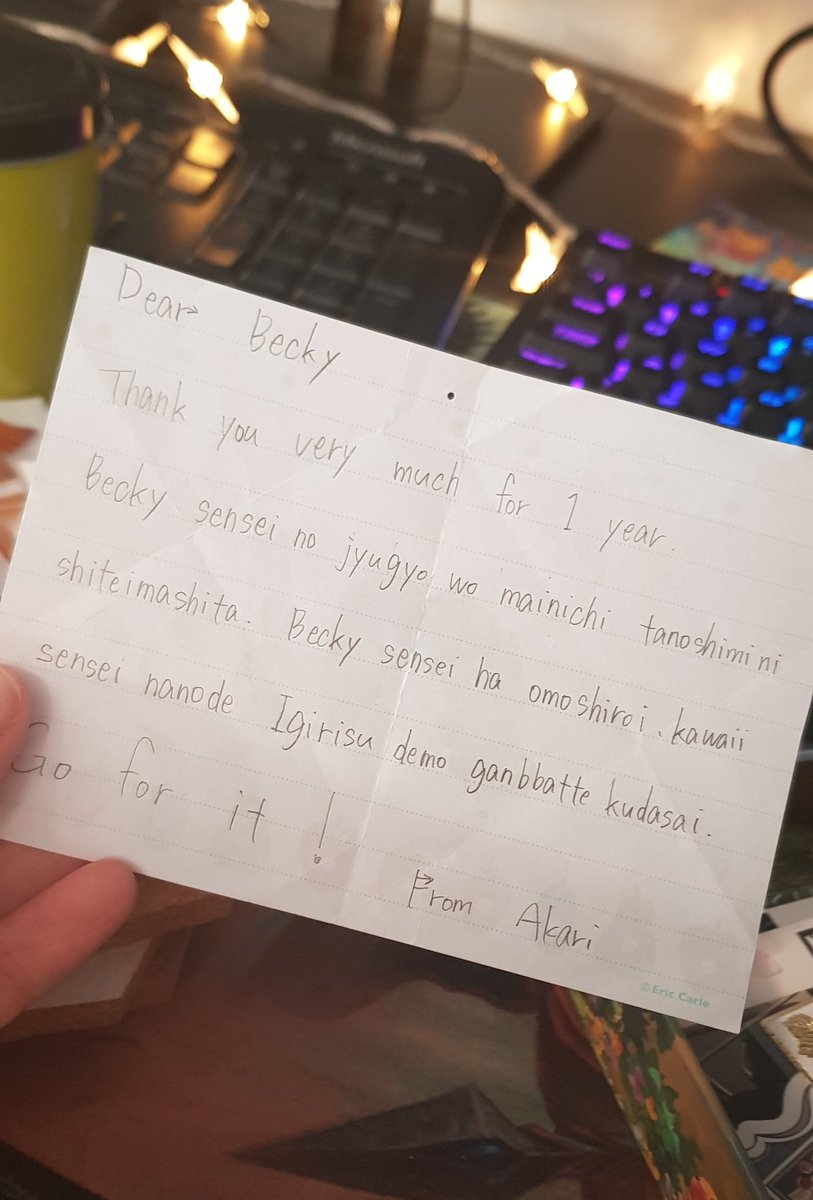 Microsoft
Dear Becky
Thank you very much for 1 year.
Becky sensei no jyugyo wo mainichi tanoshimi ni
shiteimashita. Becky sensei ha omoshiroi、kawaii
sensei nanode Igirisu demo ganbbatte kudasai.
Go for it!
From Akari
©Eric Carle